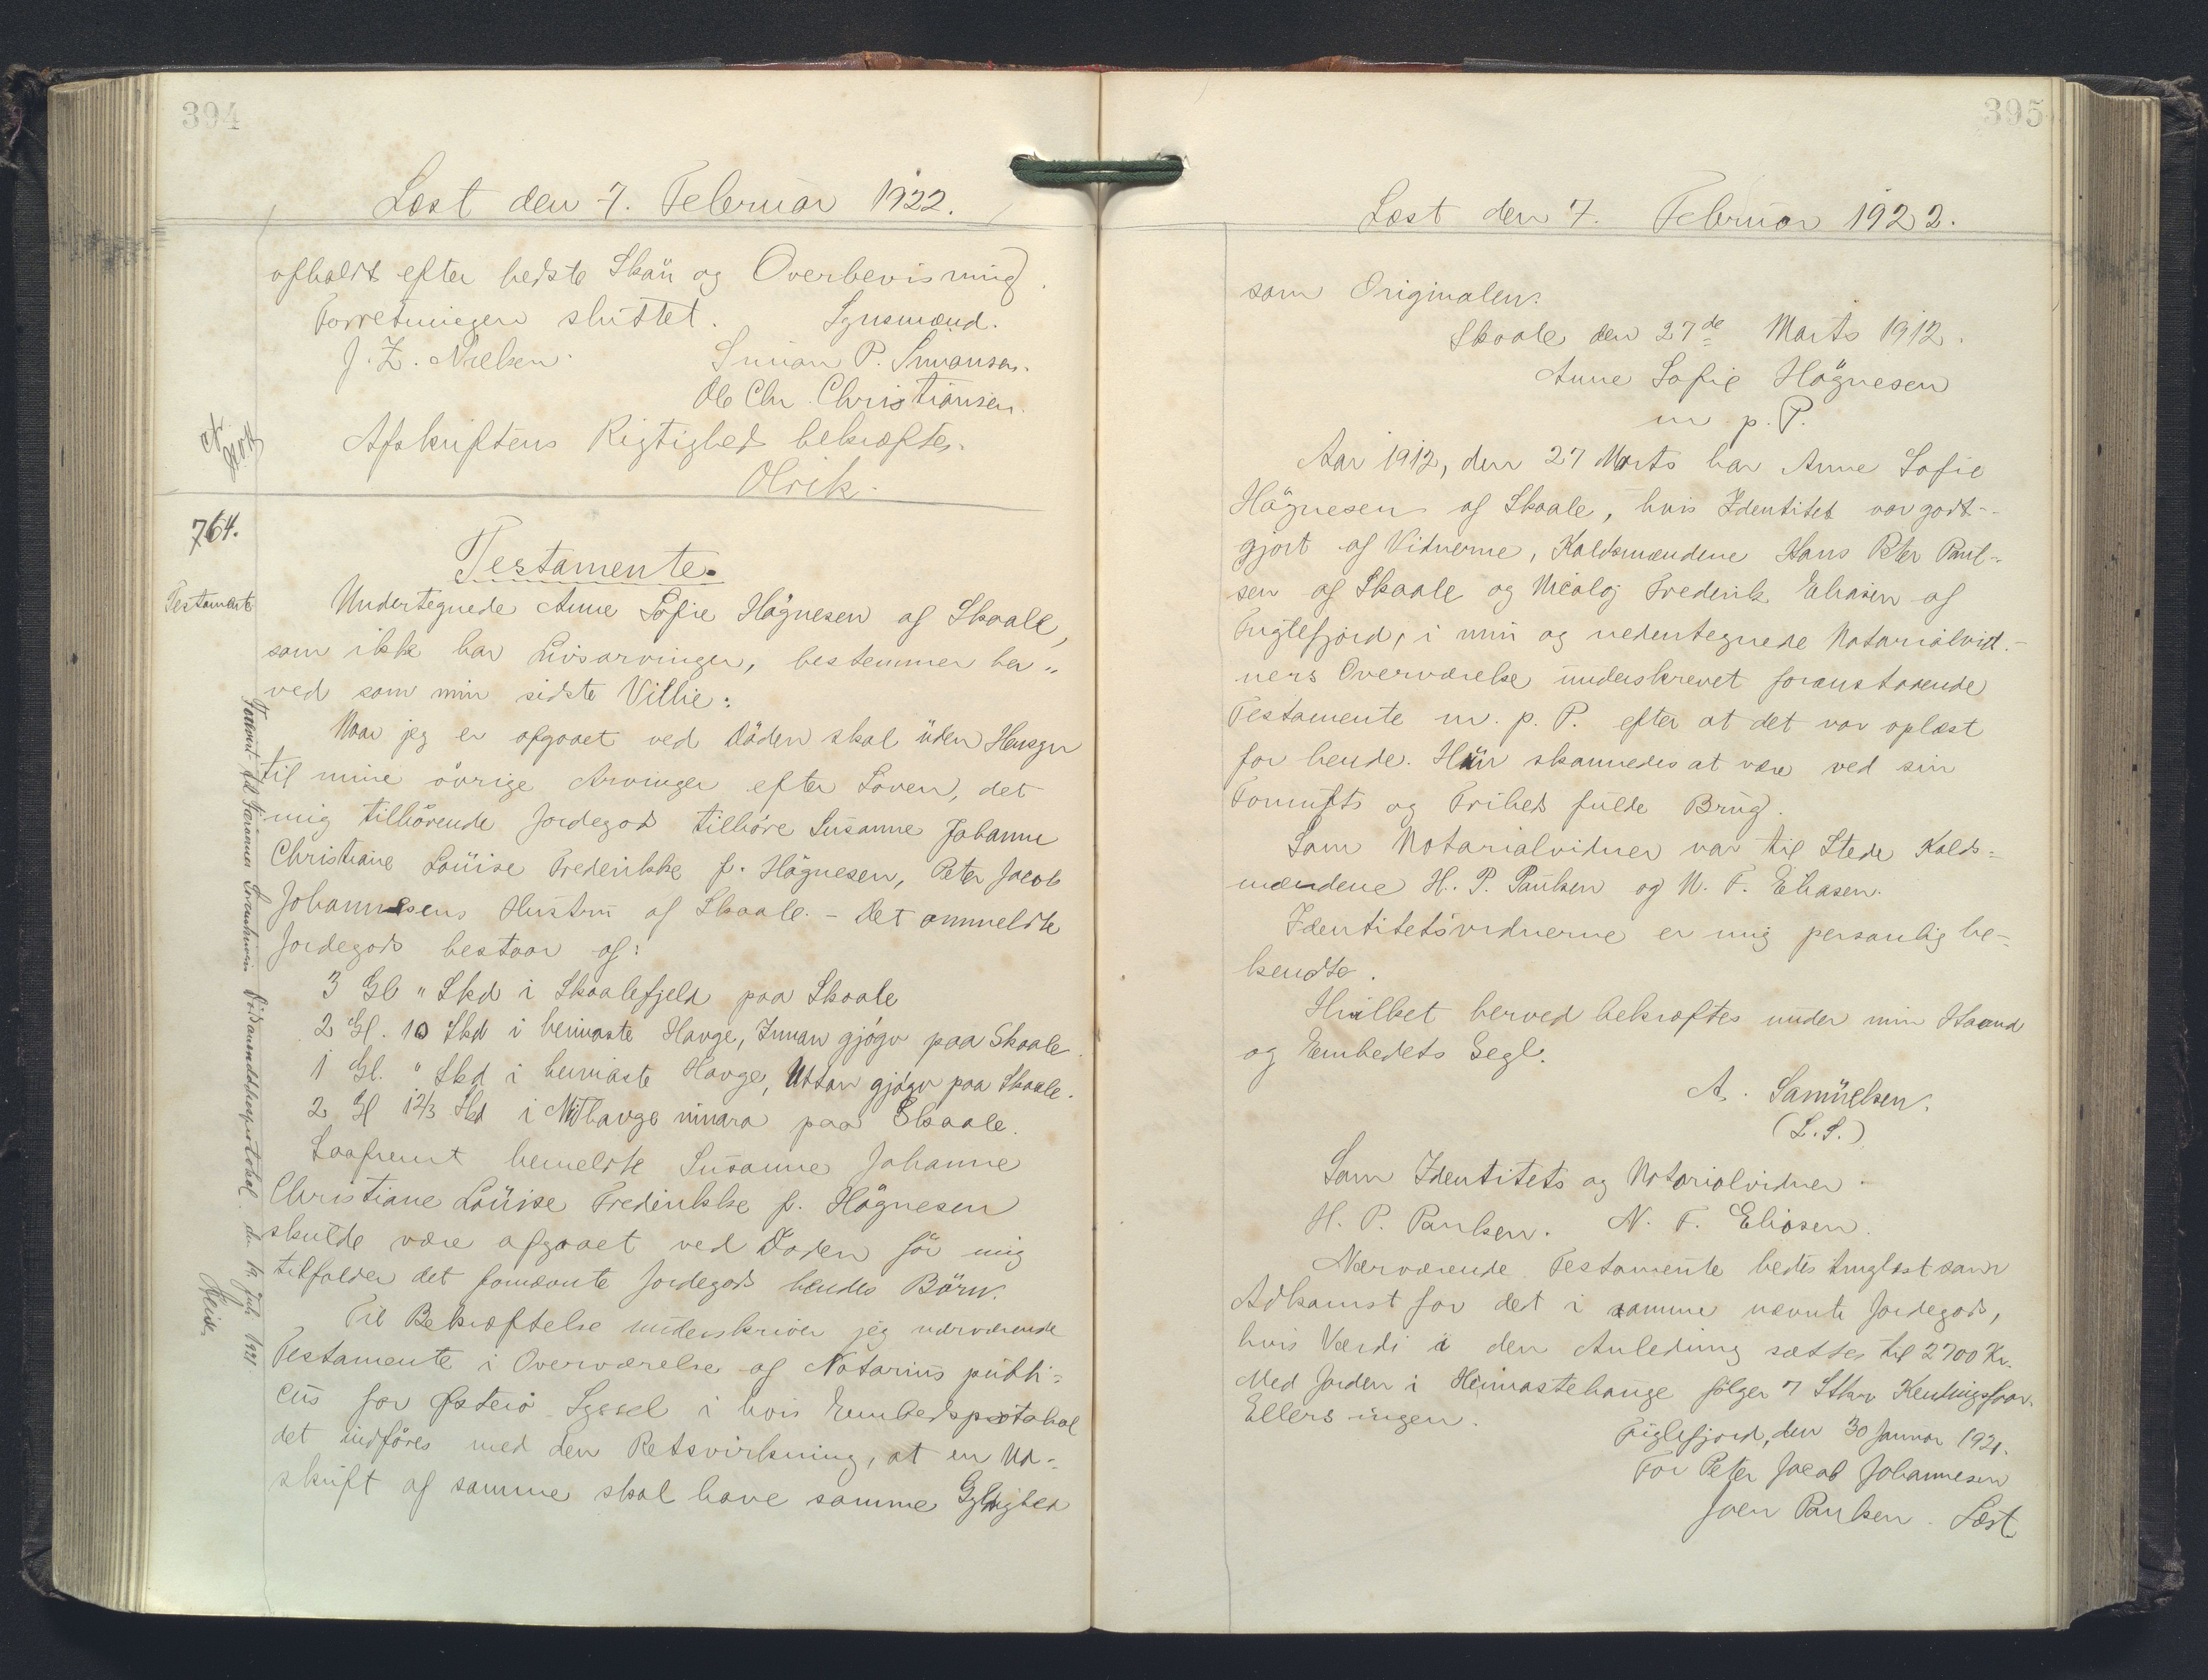 394
Læst den 7. Februar 1922.
afholdt efter bedste Skøn og Overbevisning.
Forretningen sluttet. Synsmænd.
J. Z. Nielsen. Simon P. Simonsen.
Ole Chr. Christiansen.
Afskriftens Rigtighed bekræftes.
Olrik.
764.
Testamente.
Testamente
Undertegnede Anne Sofie Högnesen af Skaale,
som ikke har Livsarvinger, bestemmer her„
ved som min sidste Villie:
Naar jeg er afgaaet ved Döden skal uden Hensyn
til mine övrige Arvinger efter Loven, det
mig tilhörende Jordegods tilhöre Susanne Johanne
Christiane Louise Frederikke f. Högnesen, Peter Jacob
Johannesens Hustru af Skaale. - Det anmeldte
Jordegods bestaar af:
3 Gl " Skd i Skaalefjeld paa Skaale
2 Gl. 10 Skd i heimaste Hauge, Innan gjógv paa Skaale.
1 Gl. " Skd i heimaste Hauge, Uttan gjógv paa Skaale.
2 Gl 12/3 Skd i Mithauge ninara paa Skaale.
Saafremt bemeldte Susanne Johanne
Christiane Louise Frederikke f. Högnesen
skulde være afgaaet ved Döden för mig
tilfalder det fornævnte Jordegods hendes Börn.
Til Bekræftelse underskriver jeg nærværende
Testamente i Overværelse af Notarius publi=
cus for Østerö Syssel i hvis Embedsprotokol
det indföres med den Retsvirkning, at en Ud=
skrift af samme skal have samme Gyldighed
den 14. Juli 1921.
395
Læst den 7. Februar 1922.
som Originalen.
Skaale den 27de Marts 1912.
Anne Sofie Högnesen
m. p. P.
Aar 1912, den 27 Marts har Anne Sofie
Högnesen af Skaale, hvis Identitet var godt-
gjort af Vidnerne, Kaldsmændene Hans Peter Paul-
sen af Skaale og Nicolaj Frederik Eliasen af
Fuglefjord, i min og nedentegnede Notarialvid-
ners Overværelse underskrevet foranstaaende
Testamente m. p. P. efter at det var oplæst
for hende. Hun skønnedes at være ved sin
Fornufts og Friheds fulde Brug.
Som Notarialvidner var til Stede Kalds=
mændene H. P. Paulsen og N. F. Eliasen.
Identitetsvidnerne er mig personlig be-
kendte.
Hvilket herved bekræftes under min Haand
og Embedets Segl.
A. Samuelsen.
(L.S.)
Som Identitets og Notarialvidner.
H. P. Paulsen. N. F. Eliasen.
Nærværende Testamente bedes tinglæst som
Adkomst for det i samme nævnte Jordegods,
hvis Værdi i den Anledning sættes til 2700 Kr.
Med Jorden i Heimastehauge fölger 7 Stkr
Ellers ingen.
Fuglefjord, den 30 Januar 1921.
For Peter Jacob Johannesen
Joen Paulsen. Læst